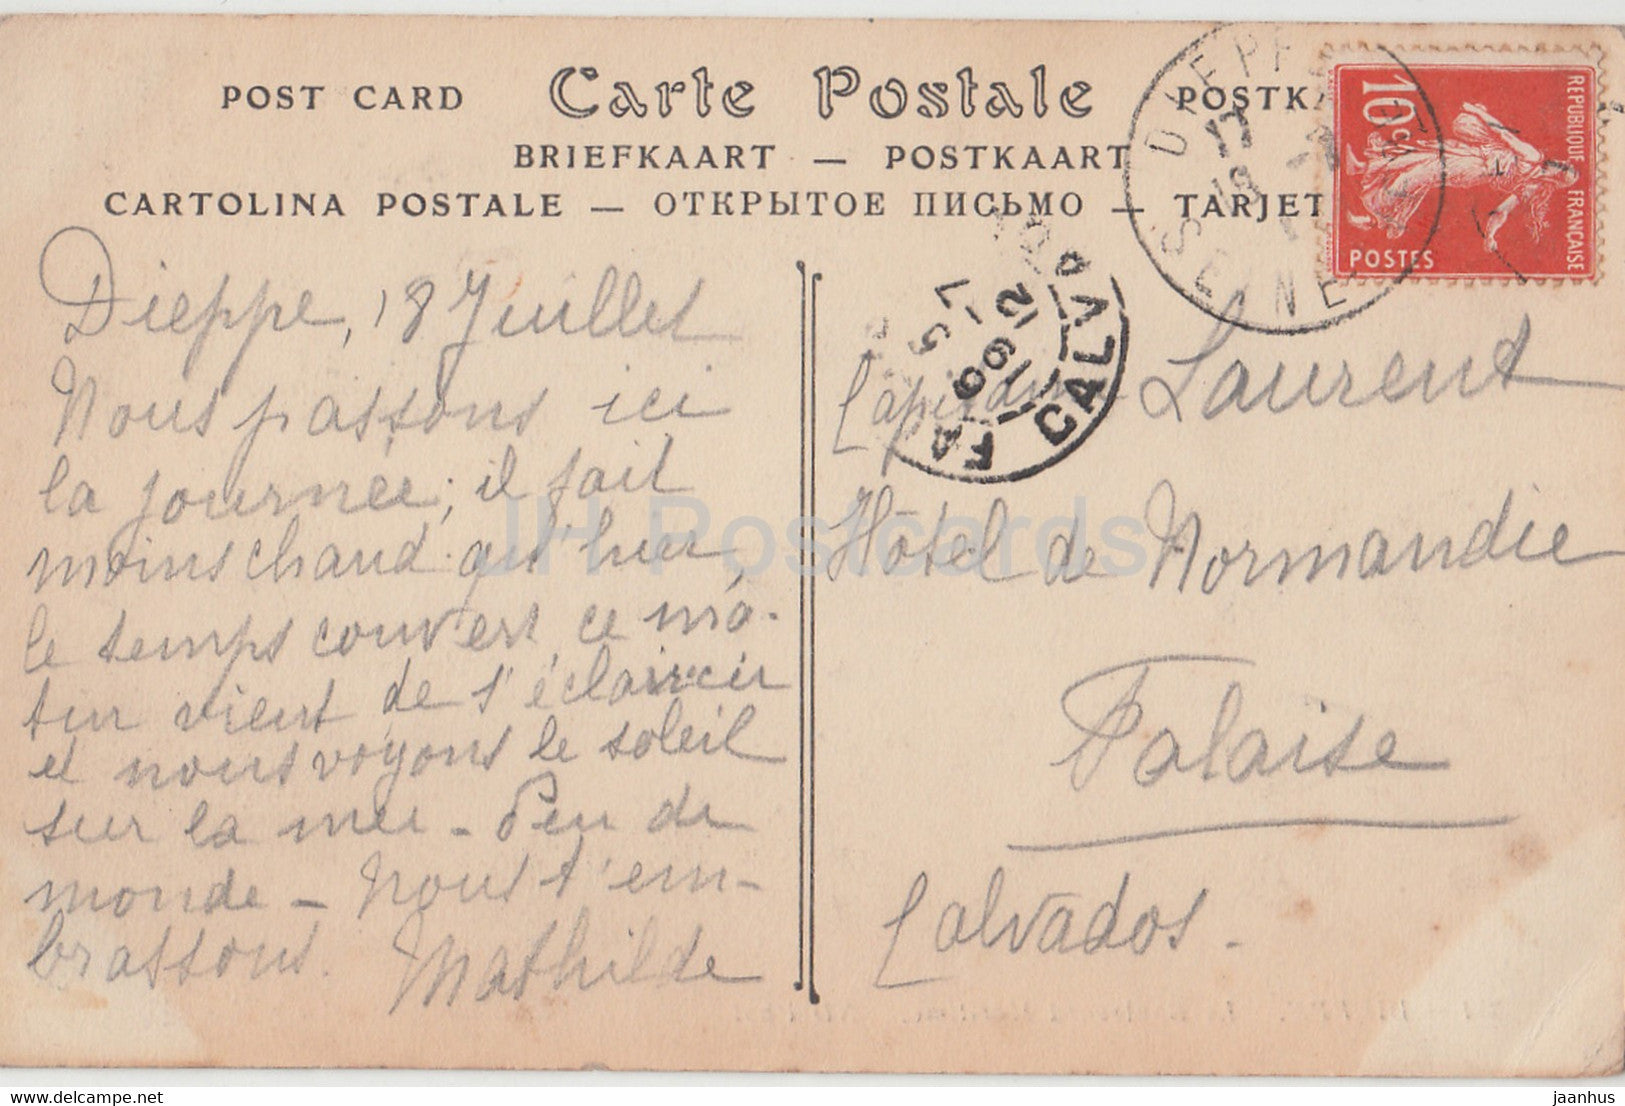 POST CARD Carte Postale POSTK
BRIEFKAART — POSTKAART
CARTOLINA POSTALE — ОТКРЫТОЕ ПИСЬМО — TARJET
REPUBLIQUE FRANÇAISE
10c
POSTES
DIEPP
SEINE
CALV
Dieppe, 18 Juillet
Nous passons ici
la journée; il fait
moins chaud qu'hier,
le temps couvert ce ma-
tin vient de s'éclaircir
et nous voyons le soleil
sur la mer - Peu de
monde - Nous t'em-
brassons. Mathilde
Capitaine Laurent
Hôtel de Normandie
Falaise
Calvados.
JH Postcards
delcampe.net
jaanhus